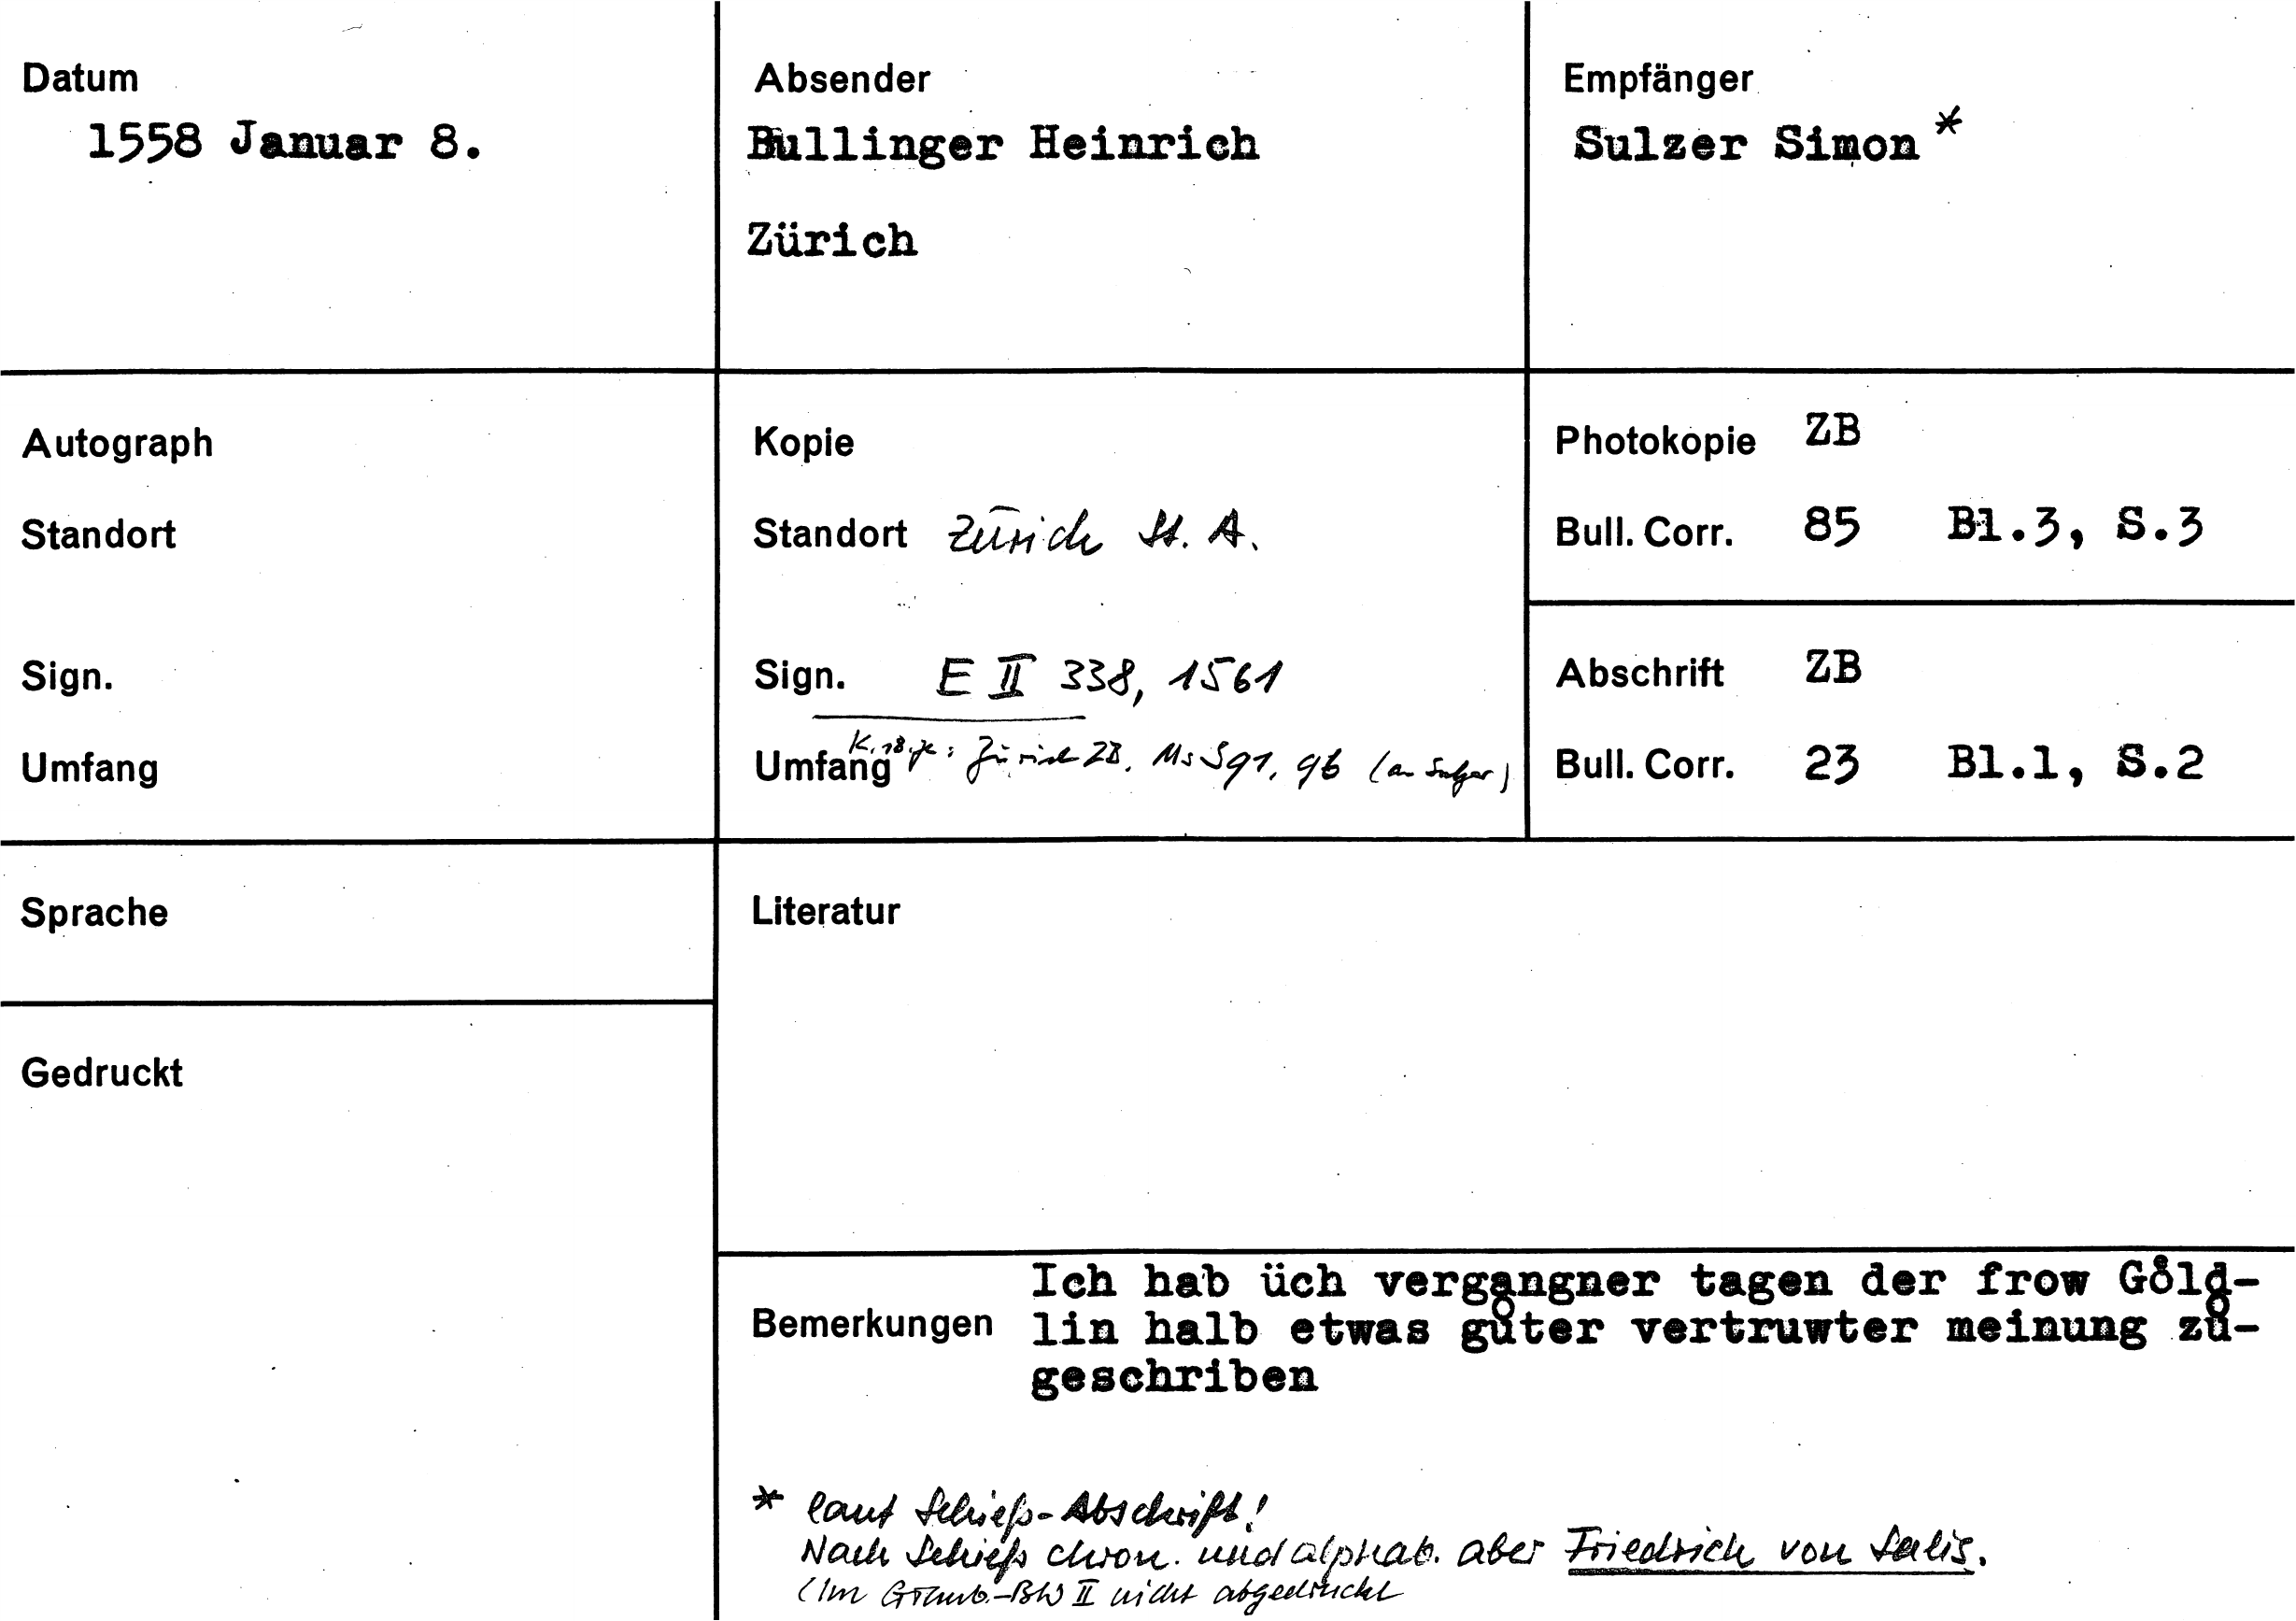 Datum
1558 Januar 8.
Absender
Bullinger Heinrich
Zürich
Empfänger
Sulzer Simon *
Autograph
Standort
Sign.
Umfang
Kopie
Standort Zürich St. A.
Sign. E II 338, 1561
Umfang K. 18. Jh: Zürich ZB. Ms S 91, 96 (an Sulzer)
Photokopie ZB
Bull. Corr. 85 Bl.3, S.3
Abschrift ZB
Bull. Corr. 23 Bl.1, S.2
Sprache
Gedruckt
Literatur
Bemerkungen
Ich hab üch vergangner tagen der frow Gôld-
lin halb etwas gůter vertruwter meinung zů-
geschriben
* laut Schieß-Abschrift!
Nach Schieß chron. und alphab. aber Friedrich von Salis.
(Im Graub.-BW II nicht abgedruckt